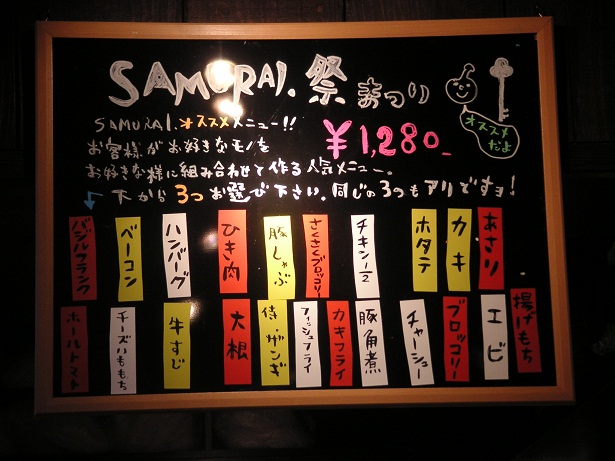 SAMURAI. 祭 まつり
SAMURAI. オススメメニュー!!
お客様がお好きなモノを
お好きな様に組み合わせて作る人気メニュー。
¥1,280-
オススメ
だよ
下から3つお選び下さい。同じの3つもアリですョ!
バジルフランク
ベーコン
ハンバーグ
ひき肉
豚しゃぶ
さくさくブロッコリー
チキン1/2
ホタテ
カキ
あさり
ホールトマト
チーズいももち
牛すじ
大根
侍・ザンギ
フィッシュフライ
カキフライ
豚角煮
チャーシュー
ブロッコリー
エビ
揚げもち